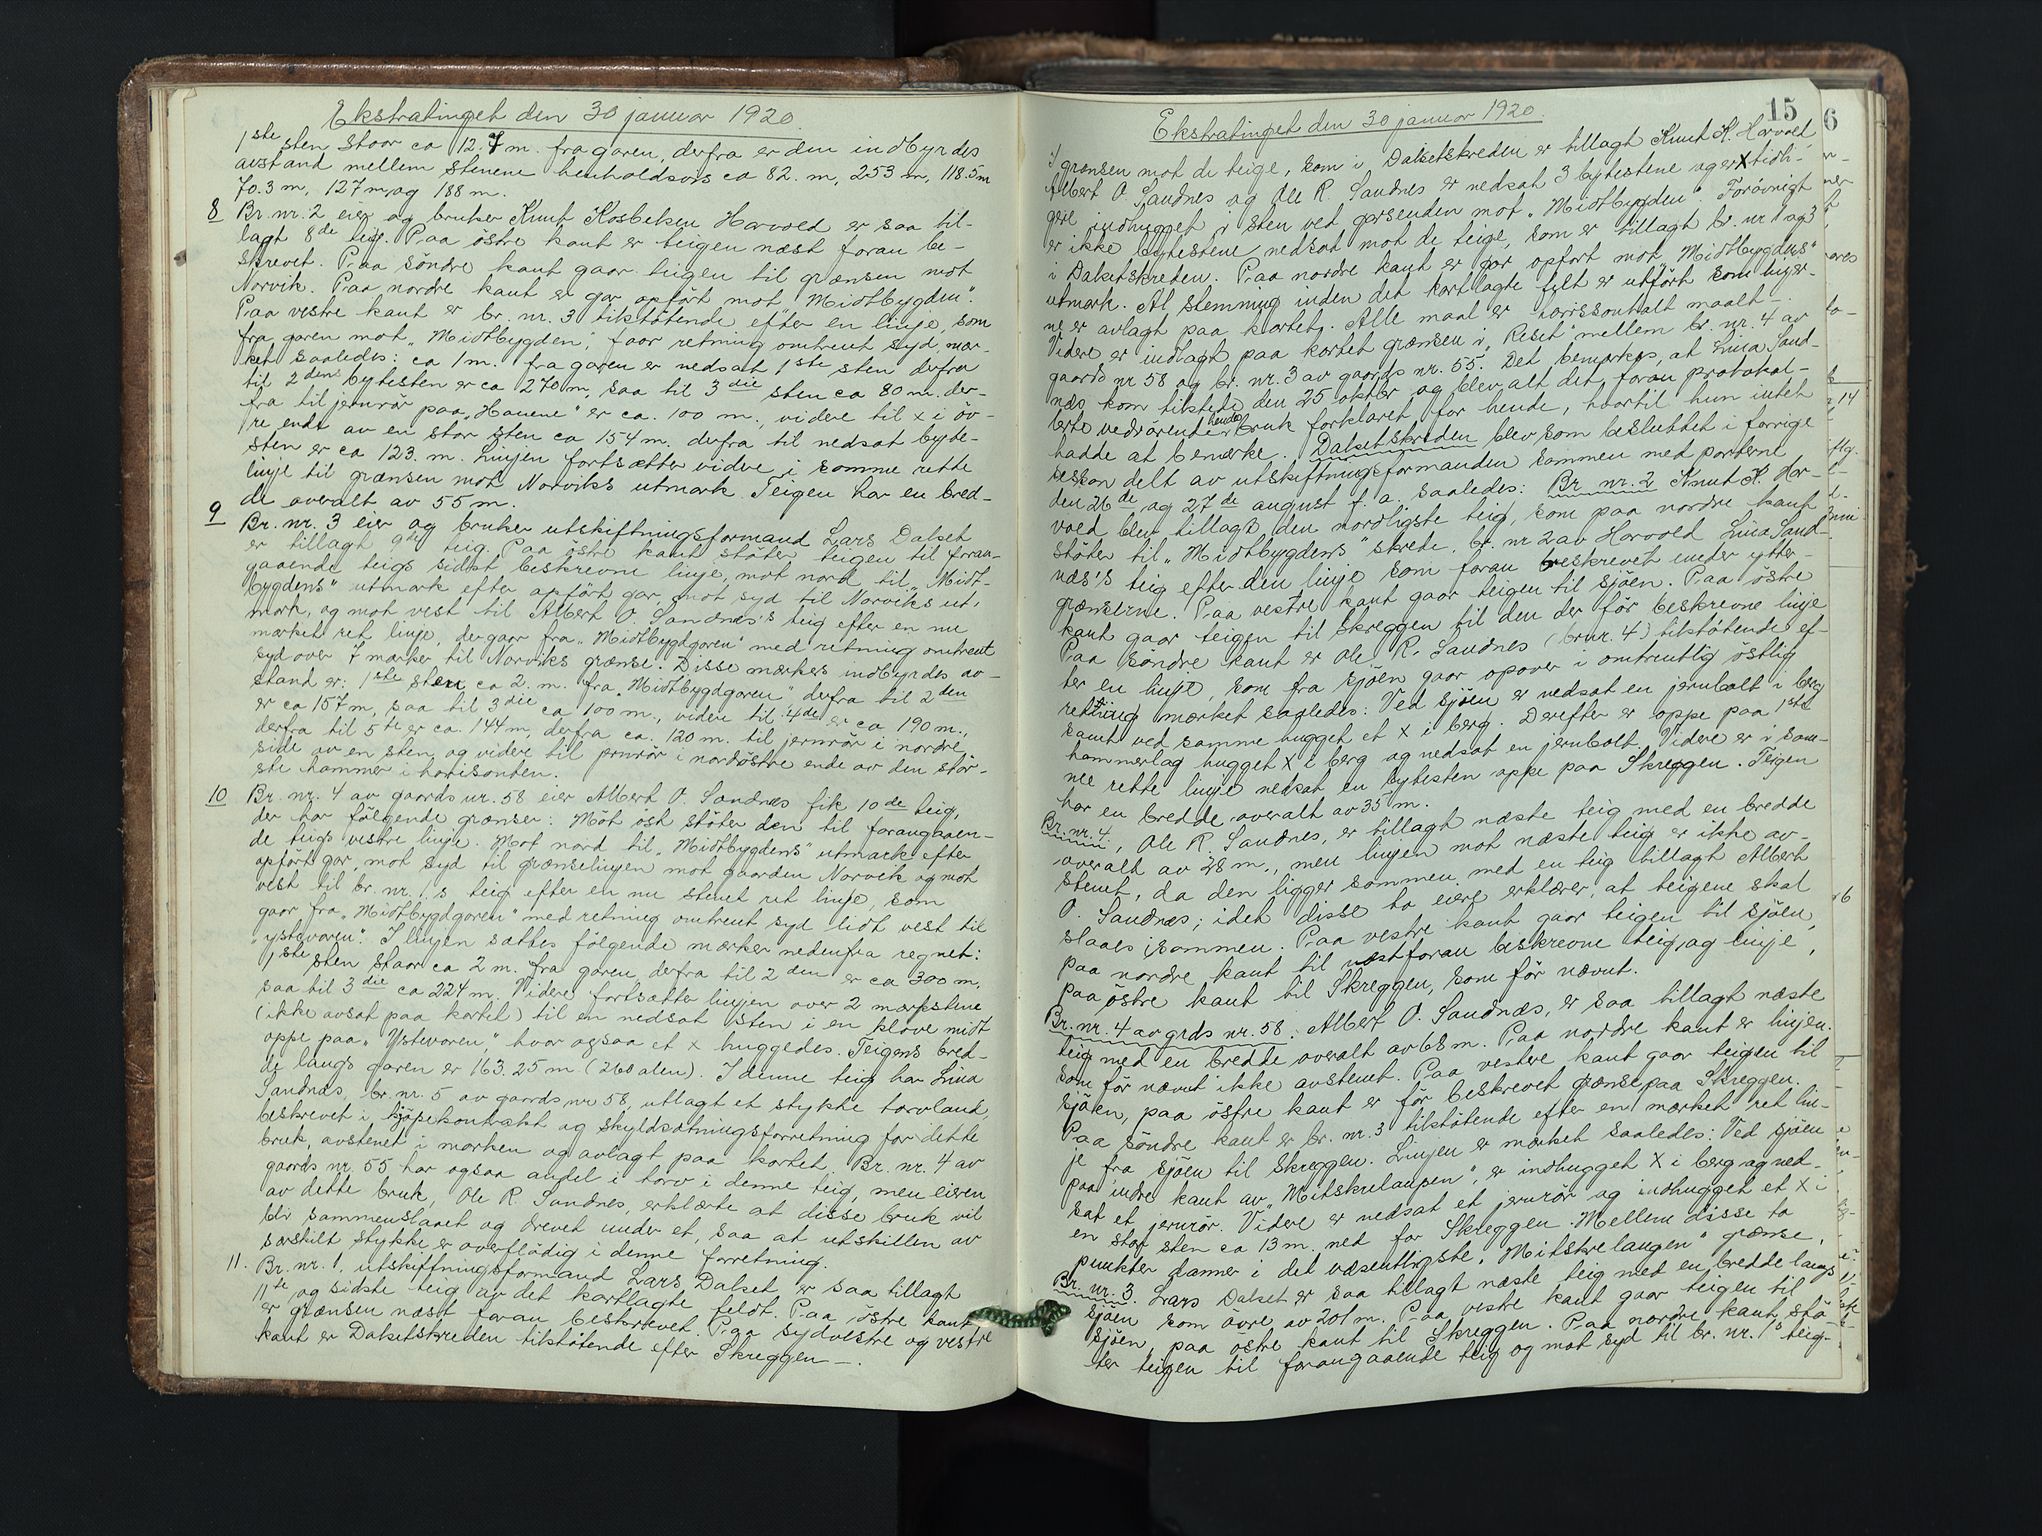 Ekstratinget den 30 januar 1920.
1ste sten staar ca 12.7 m. fra garen, derfra er den indbyrdes
avstand mellem stenene henholdsvis ca 82. m, 253 m, 118.5 m
70.3 m, 127 m, og 188 m.
8 Br. nr. 2 eier og bruker Knut Harvold er saa til-
lagt 8de teig. Paa östre kant er teigen næst foran be-
skrevet. Paa söndre kant gaar teigen til grænsen mot
Norvik. Paa nordre kant er gar opfört mot „Midtbygden".
Paa vestre kant er br. nr. 3 tilstötende efter en linje, som
fra garen mot „Midtbygden", faar retning omtrent syd, mær-
ket saaledes: ca 1 m. fra garen er nedsat 1ste sten derfra
til 2den bytesten er ca 270 m, saa til 3die sten ca 80 m. der-
fra til jernrör paa „Hauene" er ca. 100 m., videre til x i öv-
re ende av en stor sten ca 154 m. derfra til nedsat byde-
sten er ca 123. m. Linjen fortsætter videre i samme rette
linje til grænsen mot Norviks utmark. Teigen har en bred-
de overalt av 55 m.
9 Br. nr. 3 eier og bruker utskiftningsformand Lars Dalset
er tillagt 9de teig. Paa östre kant stöter teigen til foran-
gaaende teigs sidst beskrevne linje, mot nord til „Midt-
bygdens" utmark efter opfört gar, mot syd til Norviks ut-
mark, og mot vest til Albert O. Sandnæs's teig efter en nu
mærket ret linje, der gaar fra „Midtbygdgaren" med retning omtrent
syd over 7 mærker til Norviks grænse. Disse mærkers indbyrdes av-
stand er: 1ste sten ca 2. m. fra „Midtbygdgaren" derfra til 2den
er ca 157 m, saa til 3die ca 100 m., videre til 4de er ca 190 m.,
derfra til 5te er ca. 144 m, derfra ca. 120 m. til jernrör i nordre
side av en sten, og videre til jernrör i nordöstre ende av den stör-
ste hammer i horisonten.
10 Br. nr. 4 av gaards nr. 58 eier Albert O. Sandnæs fik 10de teig,
der har fölgende grænser: Mot öst stöter den til forangaaen-
de teigs vestre linje. Mot nord til „Midtbygdens" utmark efter
opfört gar, mot syd til grænselinjen mot gaarden Norvik og mot
vest til br. nr. 1's teig efter en nu stenet ret linje, som
gaar fra „Midtbygdgaren" med retning omtrent syd lidt vest til
„ystevoren". I linjen sættes fölgende mærker nedenfra regnet:
1ste sten staar ca 2 m. fra garen, derfra til 2den er ca 300 m,
saa til 3die ca 224 m. Videre fortsætter linjen over 2 mærkstene
(ikke avsat paa kartet) til en nedsat sten i en klove midt
oppe paa „Ystevoren", hvor ogsaa et x huggedes. Teigens bred-
de langs garen er 163.25 m. (260 alen). I denne teig har Lina
Sandnæs, br. nr. 5 av gaards nr 58, utlagt et stykke torvland,
beskrevet i kjöpekontrakt og skyldsætningsforretning for dette
bruk, avstenet i marken og avlagt paa kartet. Br. nr. 4 av
gaards nr. 55 har ogsaa andel i torv i denne teig, men eieren
av dette bruk, Ole R. Sandnes, erklærte at disse bruk vil
bli sammenslaaet og drevet under et, saa at utskillen av
særskilt stykke er overflödig i denne forretning.
11. Br. nr. 1, utskiftningsformand Lars Dalset, er saa tillagt
11te og sidste teig av det kartlagte feldt. Paa östre kant
er grænsen næst foran beskrevet. Paa sydvestre og vestre
kant er Dalsetskreden tilstötende efter Skreggen —.
15
Ekstratinget den 30 januar 1920.
I grænsen mot de teige, som i Dalsetskreden er tillagt Knut K. Harvold
Albert O. Sandnes og Ole R. Sandnes er nedsat 3 bytestene og er X tidli-
gere indhugget i sten ved garsenden mot „Midtbygden". Forövrigt
er ikke bytestene nedsat mot de teige, som er tillagt br. nr 1 og 3
i Dalsetskreden. Paa nordre kant er gar opfört mot „Midtbygdens"
utmark. Al stemning inden det kartlagte felt er utfört som linjer-
ne er avlagt paa kartet. Alle maal er horissontalt maalt —.
Videre er indlagt paa kartet grænsen i „Reset" mellem br. nr. 4 av
gaards nr 58 og br. nr. 3 av gaards nr. 55. Det bemærkes, at Lina Sand-
næs kom tilstede den 25 oktbr og blev alt det foran protokol-
lerte vedrörende hendes bruk forklaret for hende, hvortil hun intet
hadde at bemærke. Dalsetskreden blev som besluttet i forrige
session delt av utskiftningsformanden sammen med parterne
den 26de og 27de august f. a. saaledes: Br. nr. 2 Knut K. Har-
vold blev tillagt den nordligste teig, som paa nordre kant
stöter til „Midtbygdens" skrede. br. nr 2 av Harvold Lina Sand-
næs's teig efter den linje som foran beskrevet under ytter-
grænserne. Paa vestre kant gaar teigen til sjöen. Paa östre
kant gaar teigen til Skreggen til den der för beskrevne linje
Paa söndre kant er Ole R. Sandnes (br nr. 4) tilstötende ef-
ter en linje, som fra sjöen gaar opover i omtrentlig östlig
retning mærket saaledes: Ved sjöen er nedsat en jernbolt i berg
samt ved samme hugget et X i berg. Derefter er oppe paa 1ste
hammerlag hugget X i berg og nedsat en jernbolt. Videre er i sam-
me rette linje nedsat en bytesten oppe paa Skreggen. Teigen
har en bredde overalt av 35 m.
Br. nr. 4, Ole R. Sandnes, er tillagt næste teig med en bredde
overalt av 28 m., men linjen mot næste teig er ikke av-
stenet, da den ligger sammen med en teig tillagt Albert
O. Sandnæs; idet disse to eiere erklærer, at teigene skal
slaaes sammen. Paa vestre kant gaar teigen til sjöen,
paa nordre kant til næst foran beskrevne teig og linje,
paa östre kant til Skreggen, som för nævnt.
Br. nr. 4 av grds nr. 58: Albert O. Sandnæs, er saa tillagt næste
teig med en bredde overalt av 68 m. Paa nordre kant er linjen.
som för nævnt ikke avstenet. Paa vestre kant gaar teigen til
sjöen, paa östre kant er för beskrevet grænse paa Skreggen.
Paa söndre kant er br. nr. 3 tilstötende efter en mærket ret lin-
je fra sjöen til Skreggen. Linjen er mærket saaledes: Ved sjöen
paa indre kant av „Mitskrelaupen", er indhugget X i berg og ned-
sat et jernrör. Videre er nedsat et jernrör og indhugget et X i
en stor sten ca 13 m. ned for Skreggen. Mellem disse to
punkter danner i det væsentligste „Mitskrelaugen" grænse,
Br. nr. 3. Lars Dalset er saa tillagt næste teig med en bredde langs
sjöen som övre av 201 m. Paa vestre kant gaar teigen til
sjöen, paa östre kant til Skreggen. Paa nordre kant stö-
ter teigen til forangaaende teig og mot syd til br. nr. 1's teig-
6